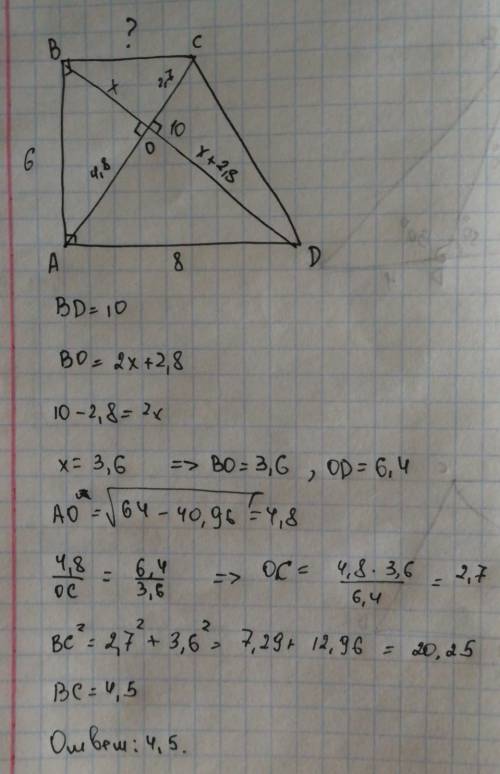 ?
B C
x 2,7
6 10
O
4,8 x+2,8
A 8 D
BD = 10
BD = 2x+2,8
10 - 2,8 = 2x
x = 3,6 => BO = 3,6 , OD = 6,4
AO = √64 - 40,96 = 4,8
4,8/OC = 6,4/3,6 => OC = 4,8 · 3,6/6,4 = 2,7
BC² = 2,7² + 3,6² = 7,29 + 12,96 = 20,25
BC = 4,5
Ответ: 4,5.